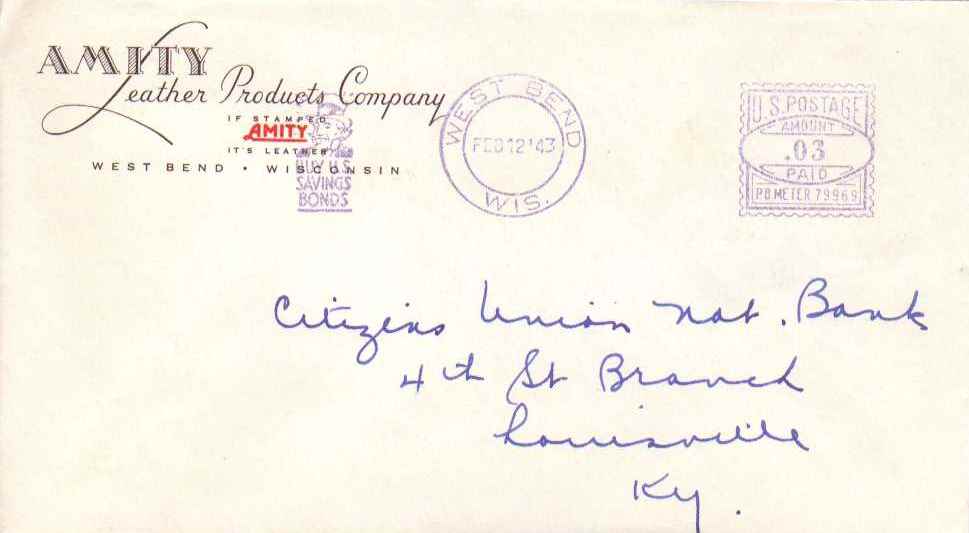 AMITY
Leather Products Company
IF STAMPED
AMITY
IT'S LEATHER
WEST BEND • WISCONSIN
BUY U.S.
SAVINGS
BONDS
WEST BEND
FEB 12 '43
WIS.
U.S. POSTAGE
AMOUNT
.03
PAID
P.B. METER 79969
Citizens Union Nat. Bank
4th St Branch
Louisville
Ky.